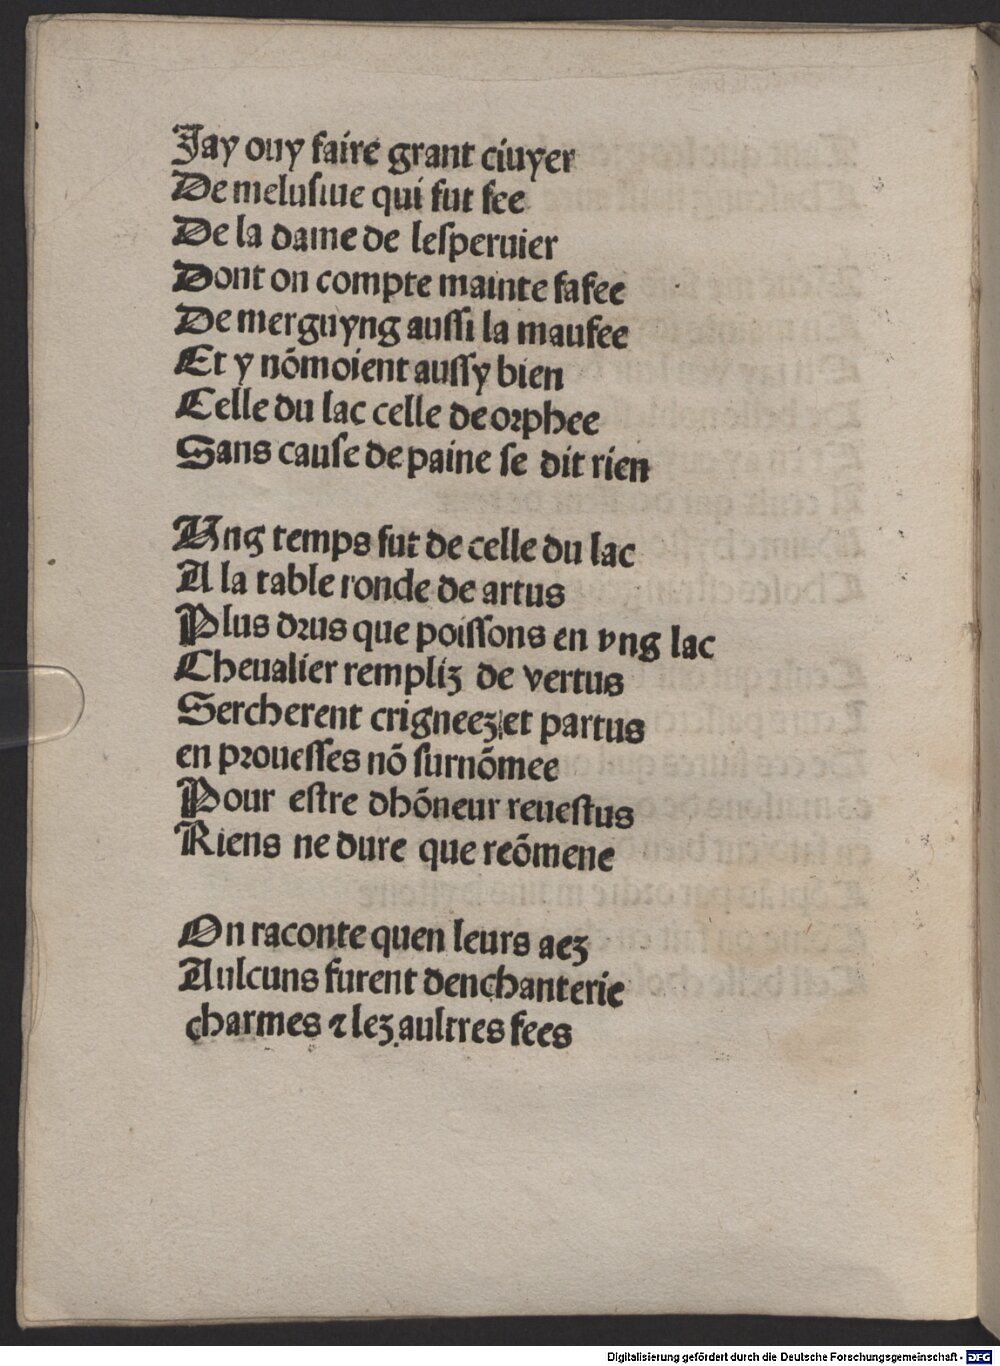 Jay ouy faire grant ciuyer
De melusiue qui fut fee
De la dame de lesperuier
Dont on compte mainte fafee
De merguyng aussi la maufee
Et y nõmoient aussy bien
Celle du lac celle de orphee
Sans cause de paine se dit rien
Vng temps fut de celle du lac
A la table ronde de artus
Plus drus que poissons en vng lac
Cheualier rempliz de vertus
Sercherent crigneez et partus
en prouesses nõ surnõmee
Pour estre dhõneur reuestus
Riens ne dure que reõmene
On raconte quen leurs aez
Aulcuns furent denchanterie
charmes ⁊ lez aultres fees
Digitalisierung gefördert durch die Deutsche Forschungsgemeinschaft - DFG